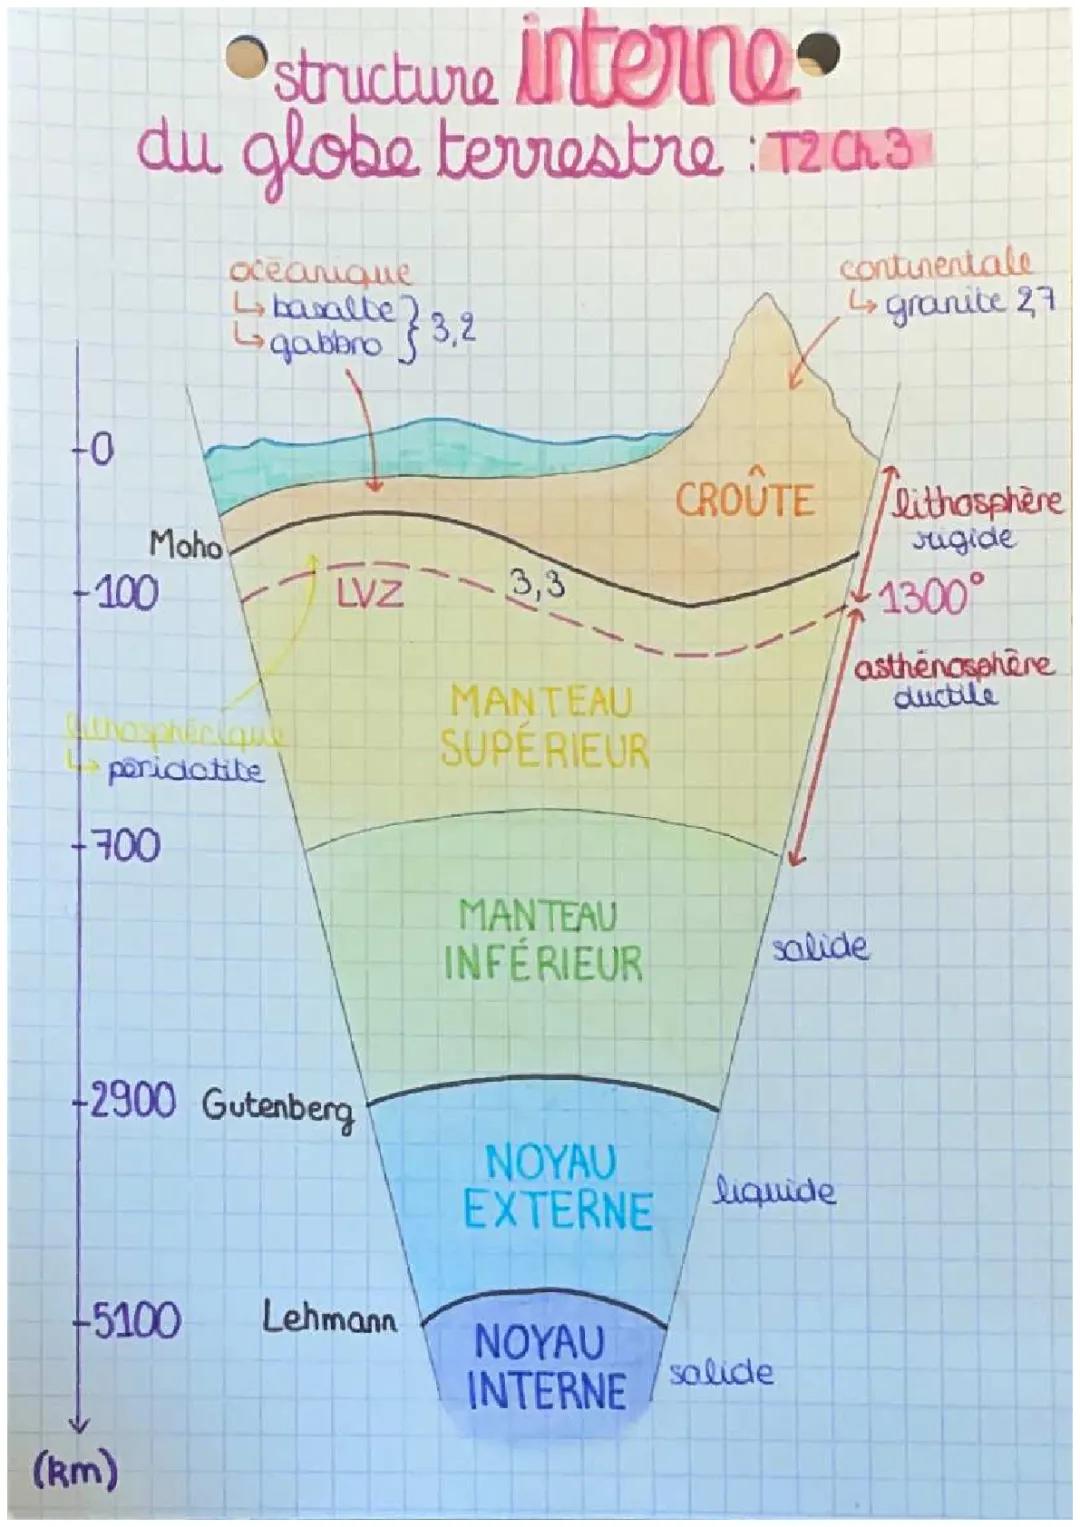 structure interne
du globe terrestre : T2 Ch 3
océanique
↳ basalte
↳ gabbro } 3,2
continentale
↳ granite 2,7
0
CROÛTE
lithosphère
rigide
Moho
100
LVZ
3,3
1300°
asthénosphère
ductile
MANTEAU
SUPÉRIEUR
lithosphérique
↳ péridotite
700
MANTEAU
INFÉRIEUR
solide
2900
Gutenberg
NOYAU
EXTERNE
liquide
5100
Lehmann
NOYAU
INTERNE
solide
(km)